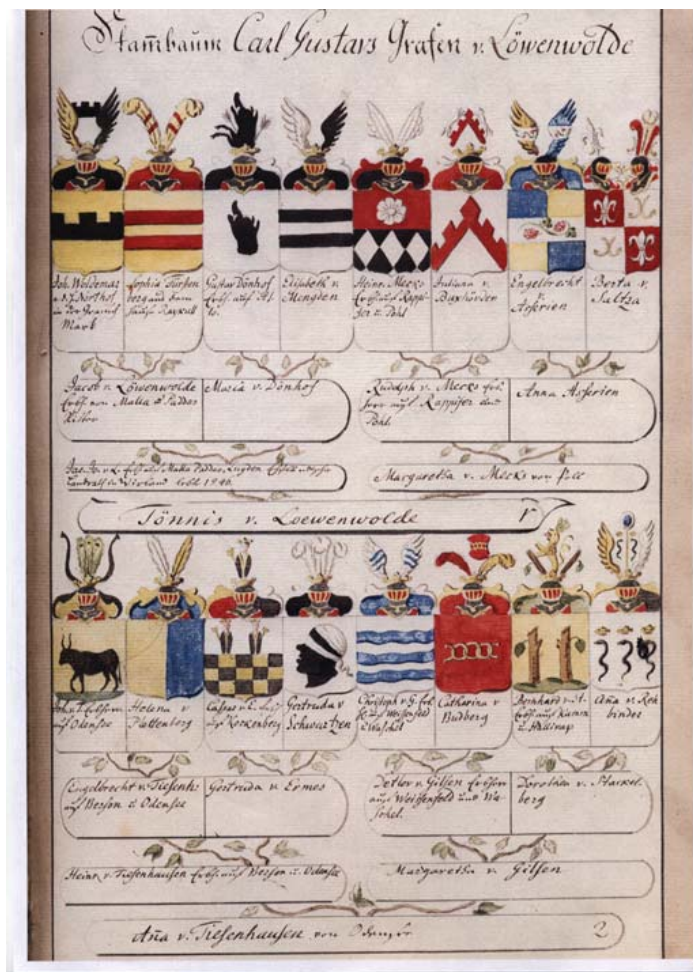 Stam̅baum Carl Gustavs Grafen v. Löwenwolde
Joh. Woldemar
v. Northof
in der Grafsch
Mark
Sophia Fürsten
berg aus dem
Hause
Gustav Dönhof
Erbh. auf
Elisabeth v
Mengden
Heinr. Mecks
Erbh. auf Rappi
fer u. Pöhl
Juliana v
Buxhörden
Engelbrecht
v.
Asserien
Berta v.
Saltza
Jacob v. Löwenwolde
Erbh. von Malla u Paddas
Ritter
Maria v. Dönhof
Rudolph v. Mecks Erb
herr auf Rappifer und
Pöhl
Anna Asserien
Malla Paddas,
Landrath in Wirland
Margaretha v. Mecks von Poll
Tönnis v. Loewenwolde
Joh. v. T. Erbherr
auf Odensee
Helena v
Plettenberg
Caspar v. E.
Kockenberg
Gertruda v
Schwartzen
Christoph v. G. Erb
h. zu Weissenfeld
u Waschel
Catharina v
Budberg
Bernhard v. St.
Erbh. auf
u.
Aña v. Reh
binder
Engelbrecht v. Tiesenh
auf Berson u Odensee
Gertruda v. Ermes
Detlov v. Gilsen Erbherr
auf Weissenfeld und Wa-
schel.
Dorothea v. Stackel
berg
Heinr v. Tiesenhausen Erbh. auf Berson u. Odensee
Margaretha v. Gilsen
Aña v. Tiesenhausen von Odensee
2